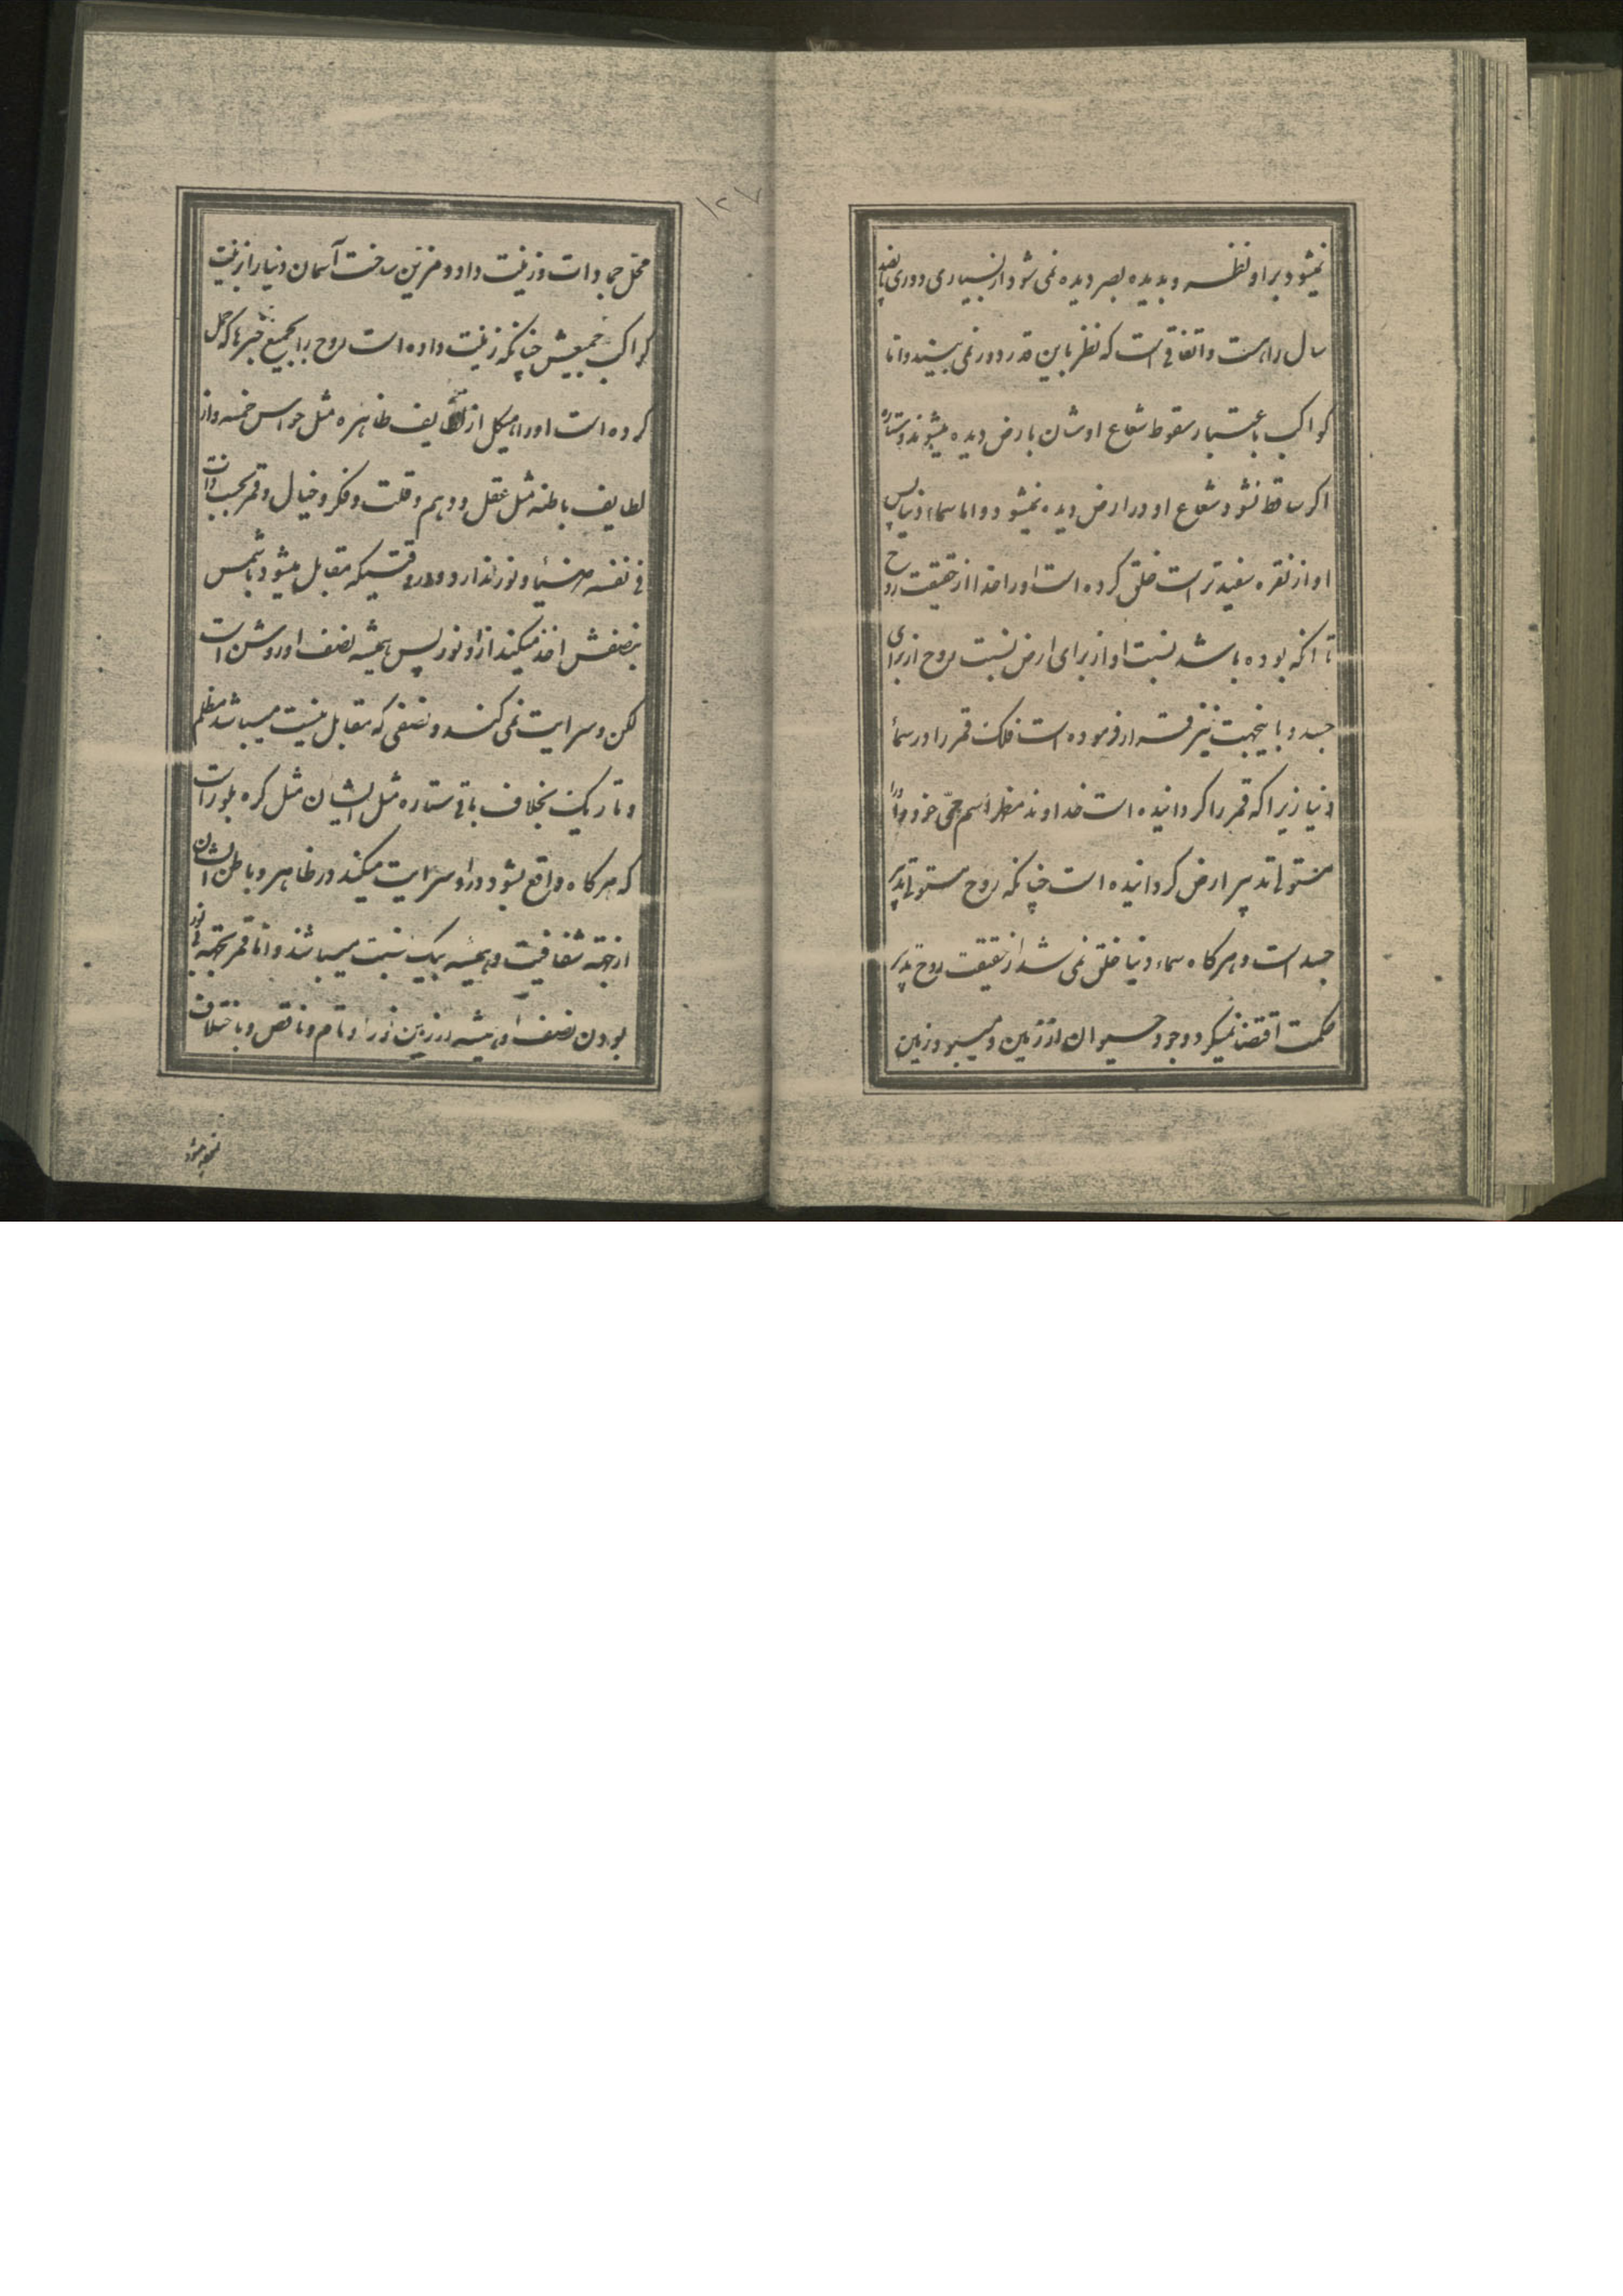 نمیشود بر او نظر و بدیده بصر دیده نمی شود از بسیاری دوری پانصد
سال راهست و اتفاقی است که نظر باین قدر دور نمی بیند و اما
کواکب باعتبار سقوط شعاع اوشان بارض دیده میشوند و ستاره
اکر ساقط نشود شعاع او در ارض دیده نمیشود و اما سماء دنیا پس
او از نقره سفیدتر است خلق کرده است او را خدا از حقیقت روح
تا آنکه بوده باشد نسبت او از برای ارض نسبت روح از برای
جسد و باینجهت نیز قرار فرموده است فلک قمر را در سماء
دنیا زیرا که قمر را کردانیده است خداوند مظهر اسم حی خود و او را
مستولی تدبیر ارض کردانیده است چنانکه روح مستولی تدبیر
جسد است و هرکاه سماء دنیا خلق نمی شد از حقیقت روح تدبیر
حکمت اقتضا نمیکرد وجود حیوان از زمین و زمین
۱۲۷
محل جمادات و زینت داد و مزین ساخت آسمان دنیا را بزینت
کواکب جمیعش چنانکه زینت داده است روح را بجمیع چیزها که حمل
کرده است او را هیکل از لطایف ظاهره مثل حواس خمسه و از
لطایف باطنه مثل عقل و وهم و فکر و خیال و قمر بحسب ذات
فی نفسه ضیاء و نور ندارد و در وقتیکه مقابل میشود با شمس
بنصفش اخذ میکند از او نور پس همیشه نصف او روشن است
لکن و سرایت نمی کند و نصفی که مقابل نیست میباشد مظلم
و تاریک بخلاف باقی ستاره مثل ایشان مثل کره بلور است
که هرکاه واقع بشود در او سرایت میکند در ظاهر و باطن ایشان
از جهته شفافیت و همیشه بیک نسبت میباشند و اما قمر بجهته نور
بودن نصف او همیشه در زمین نور او تام و ناقص و باختلاف